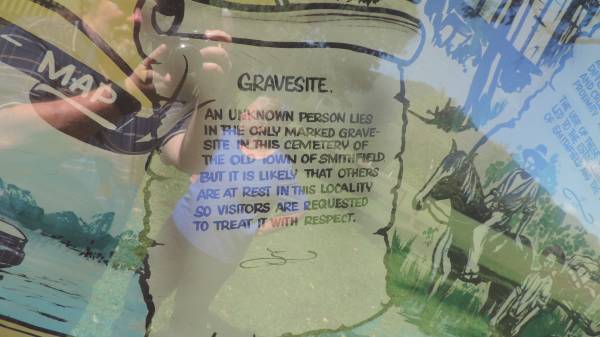 MAP
GRAVESITE.
AN UNKNOWN PERSON LIES
IN THE ONLY MARKED GRAVE-
SITE IN THIS CEMETERY OF
THE OLD TOWN OF SMITHFIELD
BUT IT IS LIKELY THAT OTHERS
ARE AT REST IN THIS LOCALITY
SO VISITORS ARE REQUESTED
TO TREAT IT WITH RESPECT.